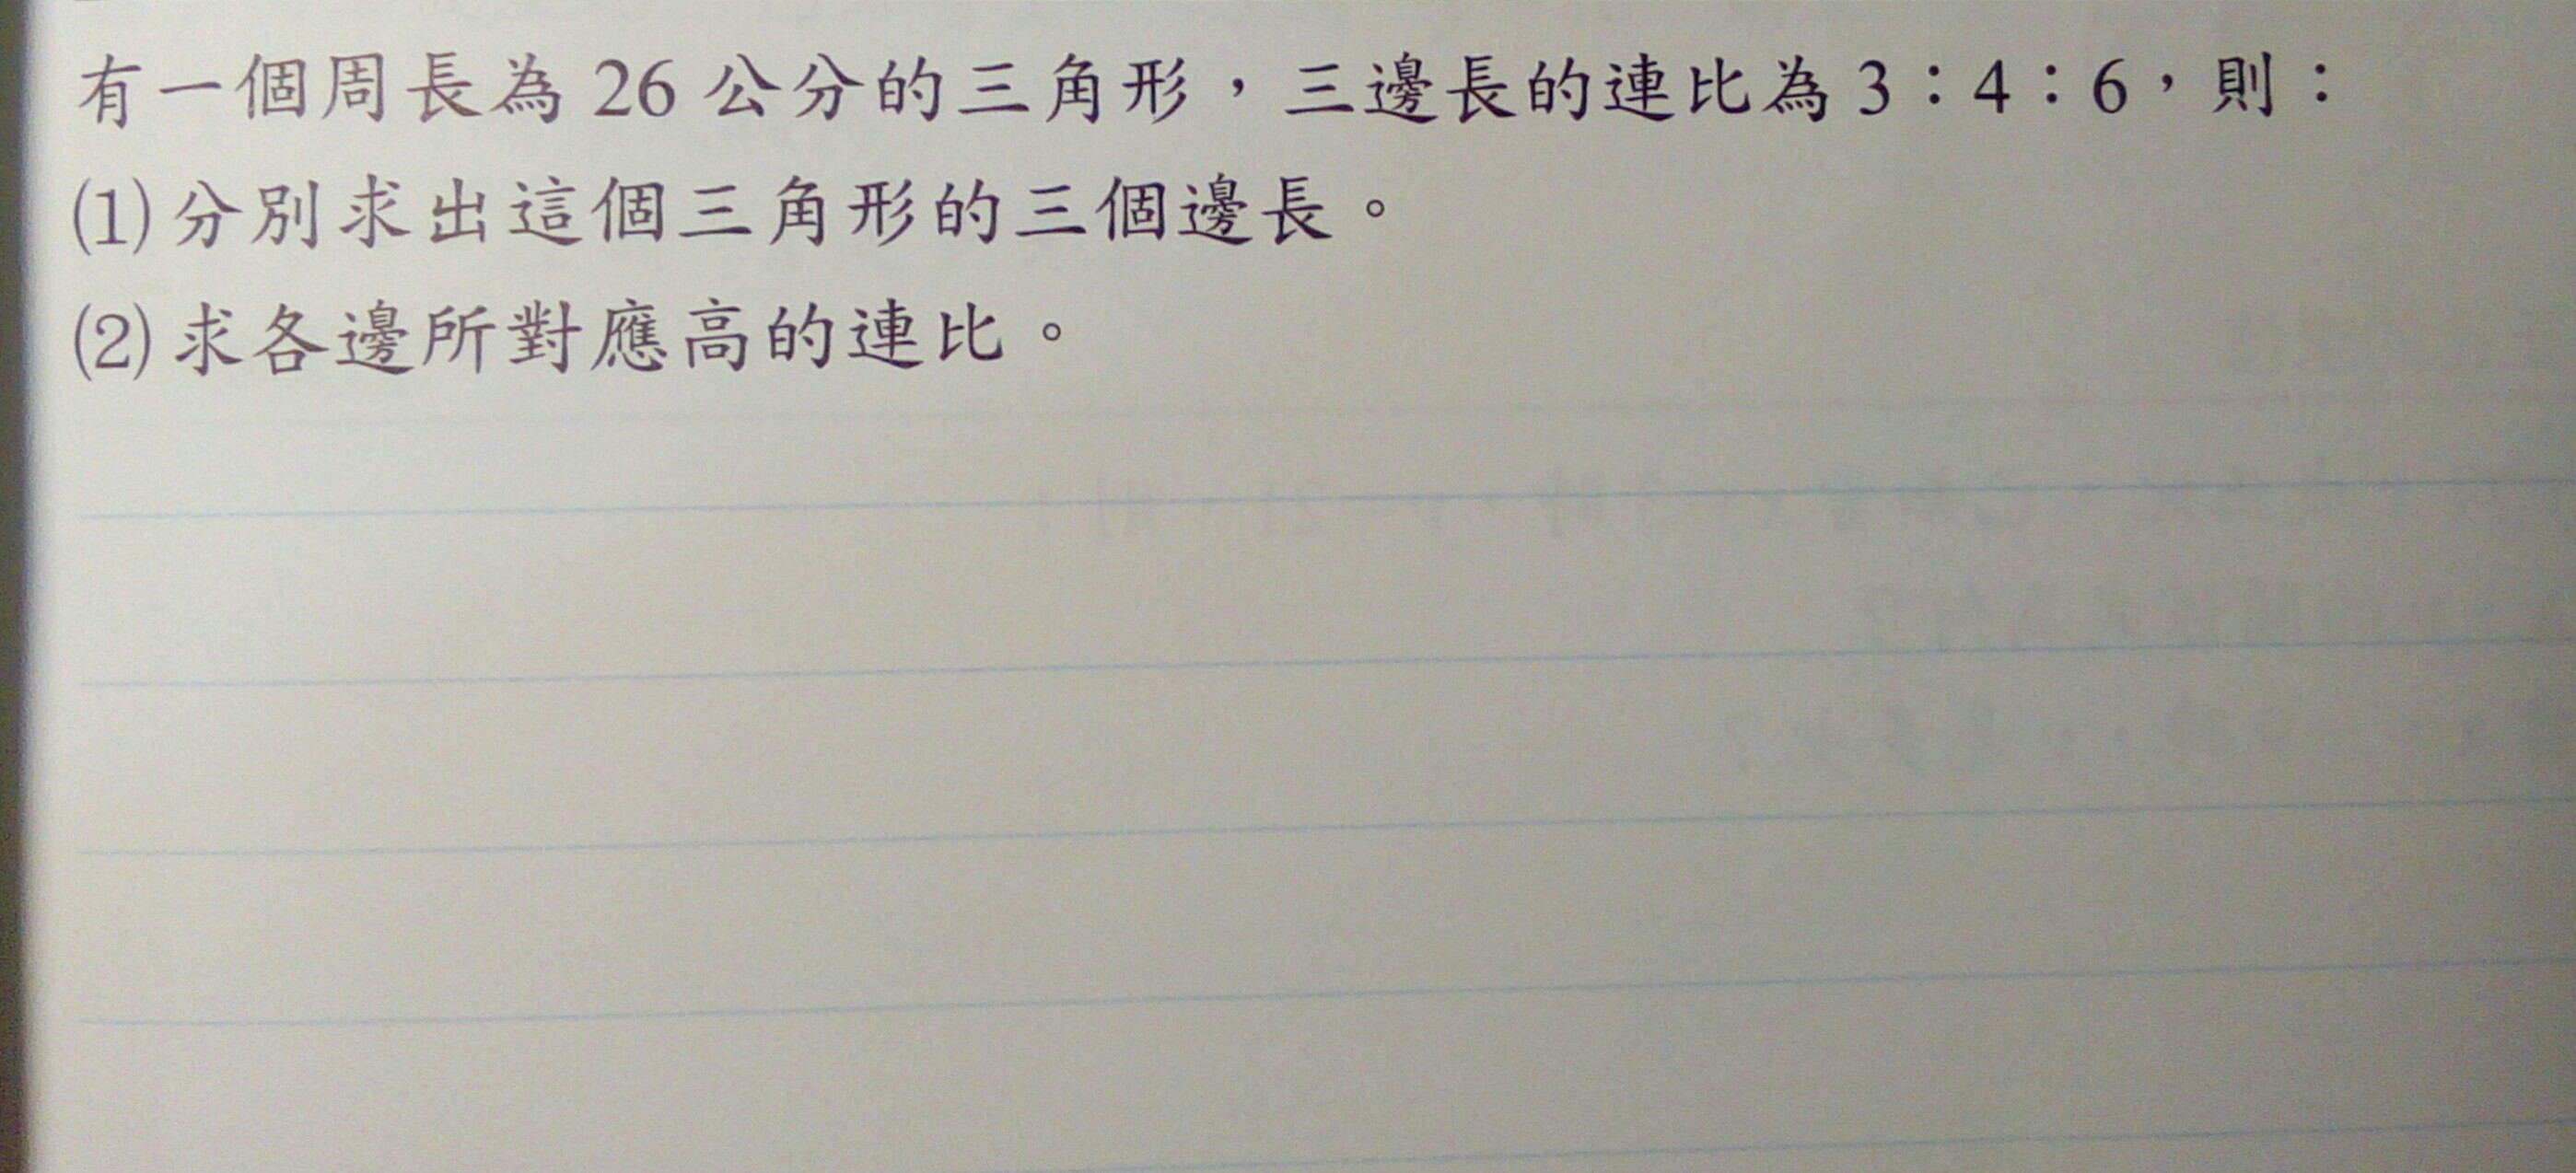 有一個周長為 26 公分的三角形，三邊長的連比為 3：4：6，則：
(1) 分別求出這個三角形的三個邊長。
(2) 求各邊所對應高的連比。